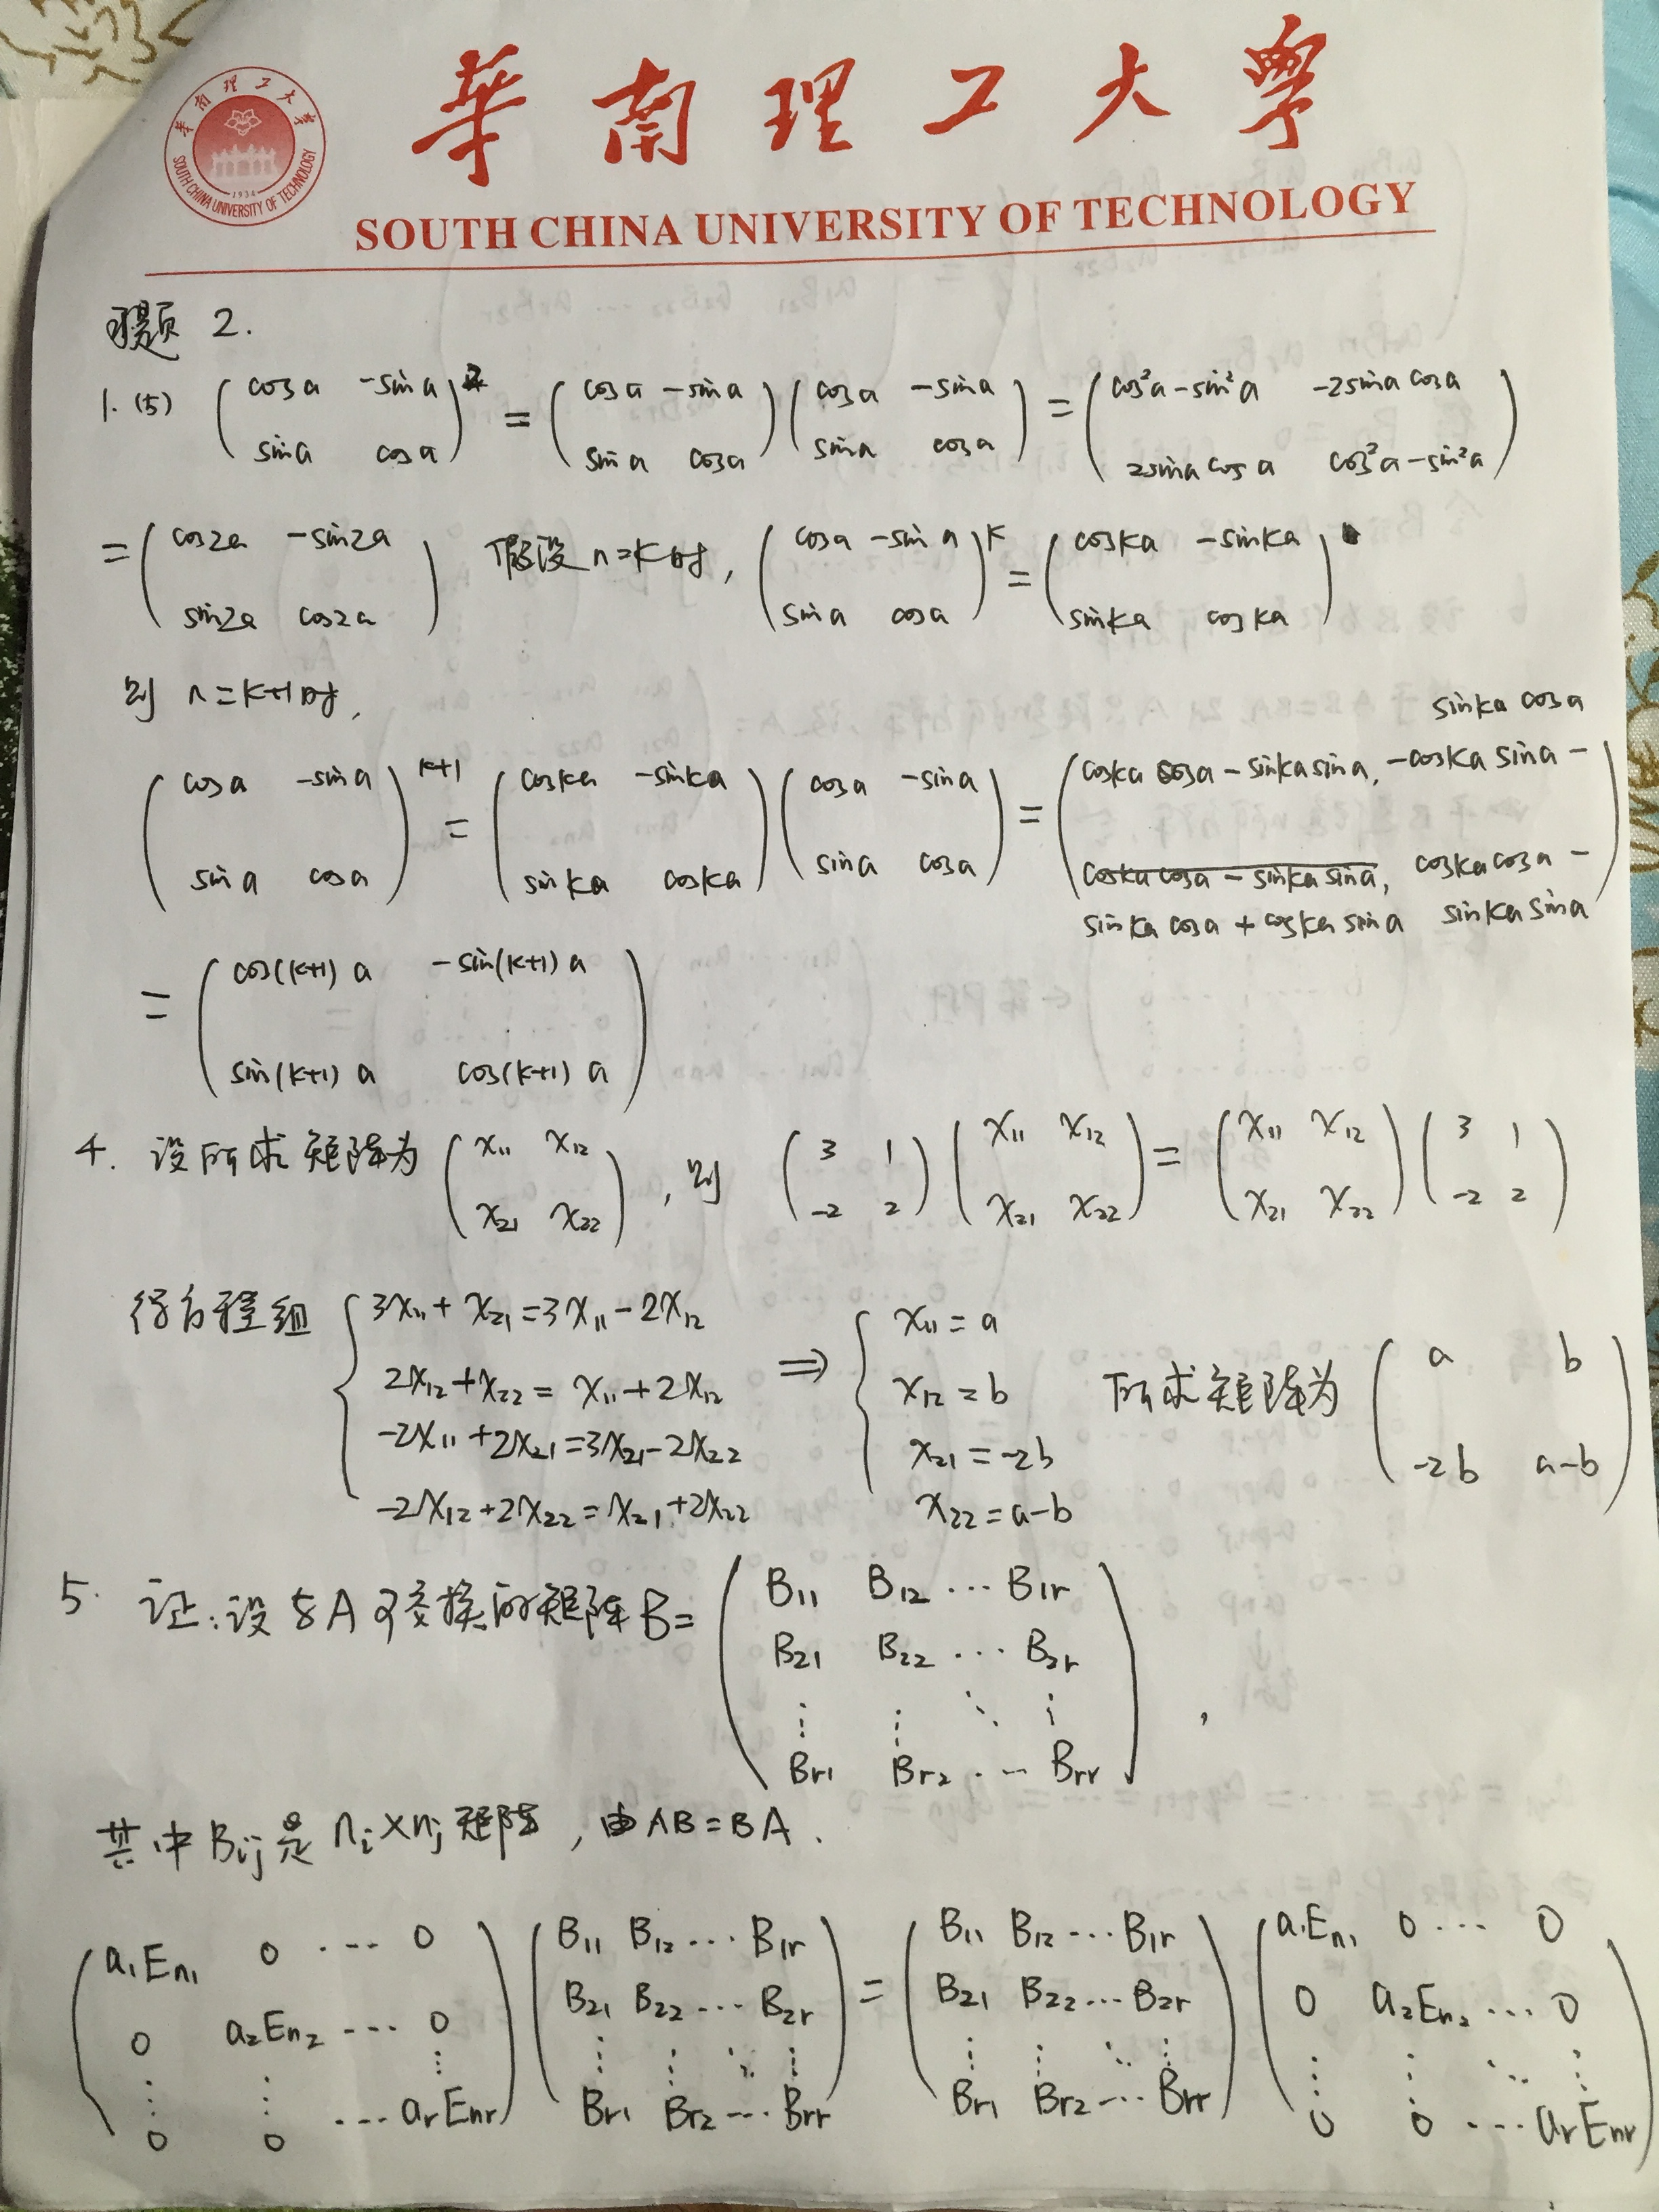 華南理工大學
SOUTH CHINA UNIVERSITY OF TECHNOLOGY
華南理工大學
SOUTH CHINA UNIVERSITY OF TECHNOLOGY
1934
习题 2.
1. (5) (cosa -sina; sina cosa)² = (cosa -sina; sina cosa)(cosa -sina; sina cosa) = (cos²a-sin²a -2sina cosa; 2sina cosa cos²a-sin²a)
= (cos2a -sin2a; sin2a cos2a) 假设 n=k时, (cosa -sina; sina cosa)^k = (coska -sinka; sinka coska)
则 n=k+1时,
(cosa -sina; sina cosa)^(k+1) = (coska -sinka; sinka coska)(cosa -sina; sina cosa) = (coska cosa - sinka sina, -coska sina - sinka cosa; sinka cosa + coska sina, coska cosa - sinka sina)
= (cos(k+1)a -sin(k+1)a; sin(k+1)a cos(k+1)a)
4. 设所求矩阵为 (x₁₁ x₁₂; x₂₁ x₂₂), 则 (3 1; -2 2)(x₁₁ x₁₂; x₂₁ x₂₂) = (x₁₁ x₁₂; x₂₁ x₂₂)(3 1; -2 2)
得方程组 { 3x₁₁+x₂₁=3x₁₁-2x₁₂ ⇒ { x₁₁=a
2x₁₂+x₂₂=x₁₁+2x₁₂ x₁₂=b 所求矩阵为 (a b; -2b a-b)
-2x₁₁+2x₂₁=3x₂₁-2x₂₂ x₂₁=-2b
-2x₁₂+2x₂₂=x₂₁+2x₂₂ x₂₂=a-b
5. 证:设与A可交换的矩阵B= (B₁₁ B₁₂ … B₁r; B₂₁ B₂₂ … B₂r; ⋮ ⋮ ⋱ ⋮; Br₁ Br₂ … Brr),
其中Bij是 ni×nj矩阵, 由AB=BA.
(a₁En₁ 0 … 0; 0 a₂En₂ … 0; ⋮ ⋮ ⋮; 0 0 … arEnr)(B₁₁ B₁₂ … B₁r; B₂₁ B₂₂ … B₂r; ⋮ ⋮ ⋱ ⋮; Br₁ Br₂ … Brr) = (B₁₁ B₁₂ … B₁r; B₂₁ B₂₂ … B₂r; ⋮ ⋮ ⋱ ⋮; Br₁ Br₂ … Brr)(a₁En₁ 0 … 0; 0 a₂En₂ … 0; ⋮ ⋮ ⋱ ⋮; 0 0 … arEnr)